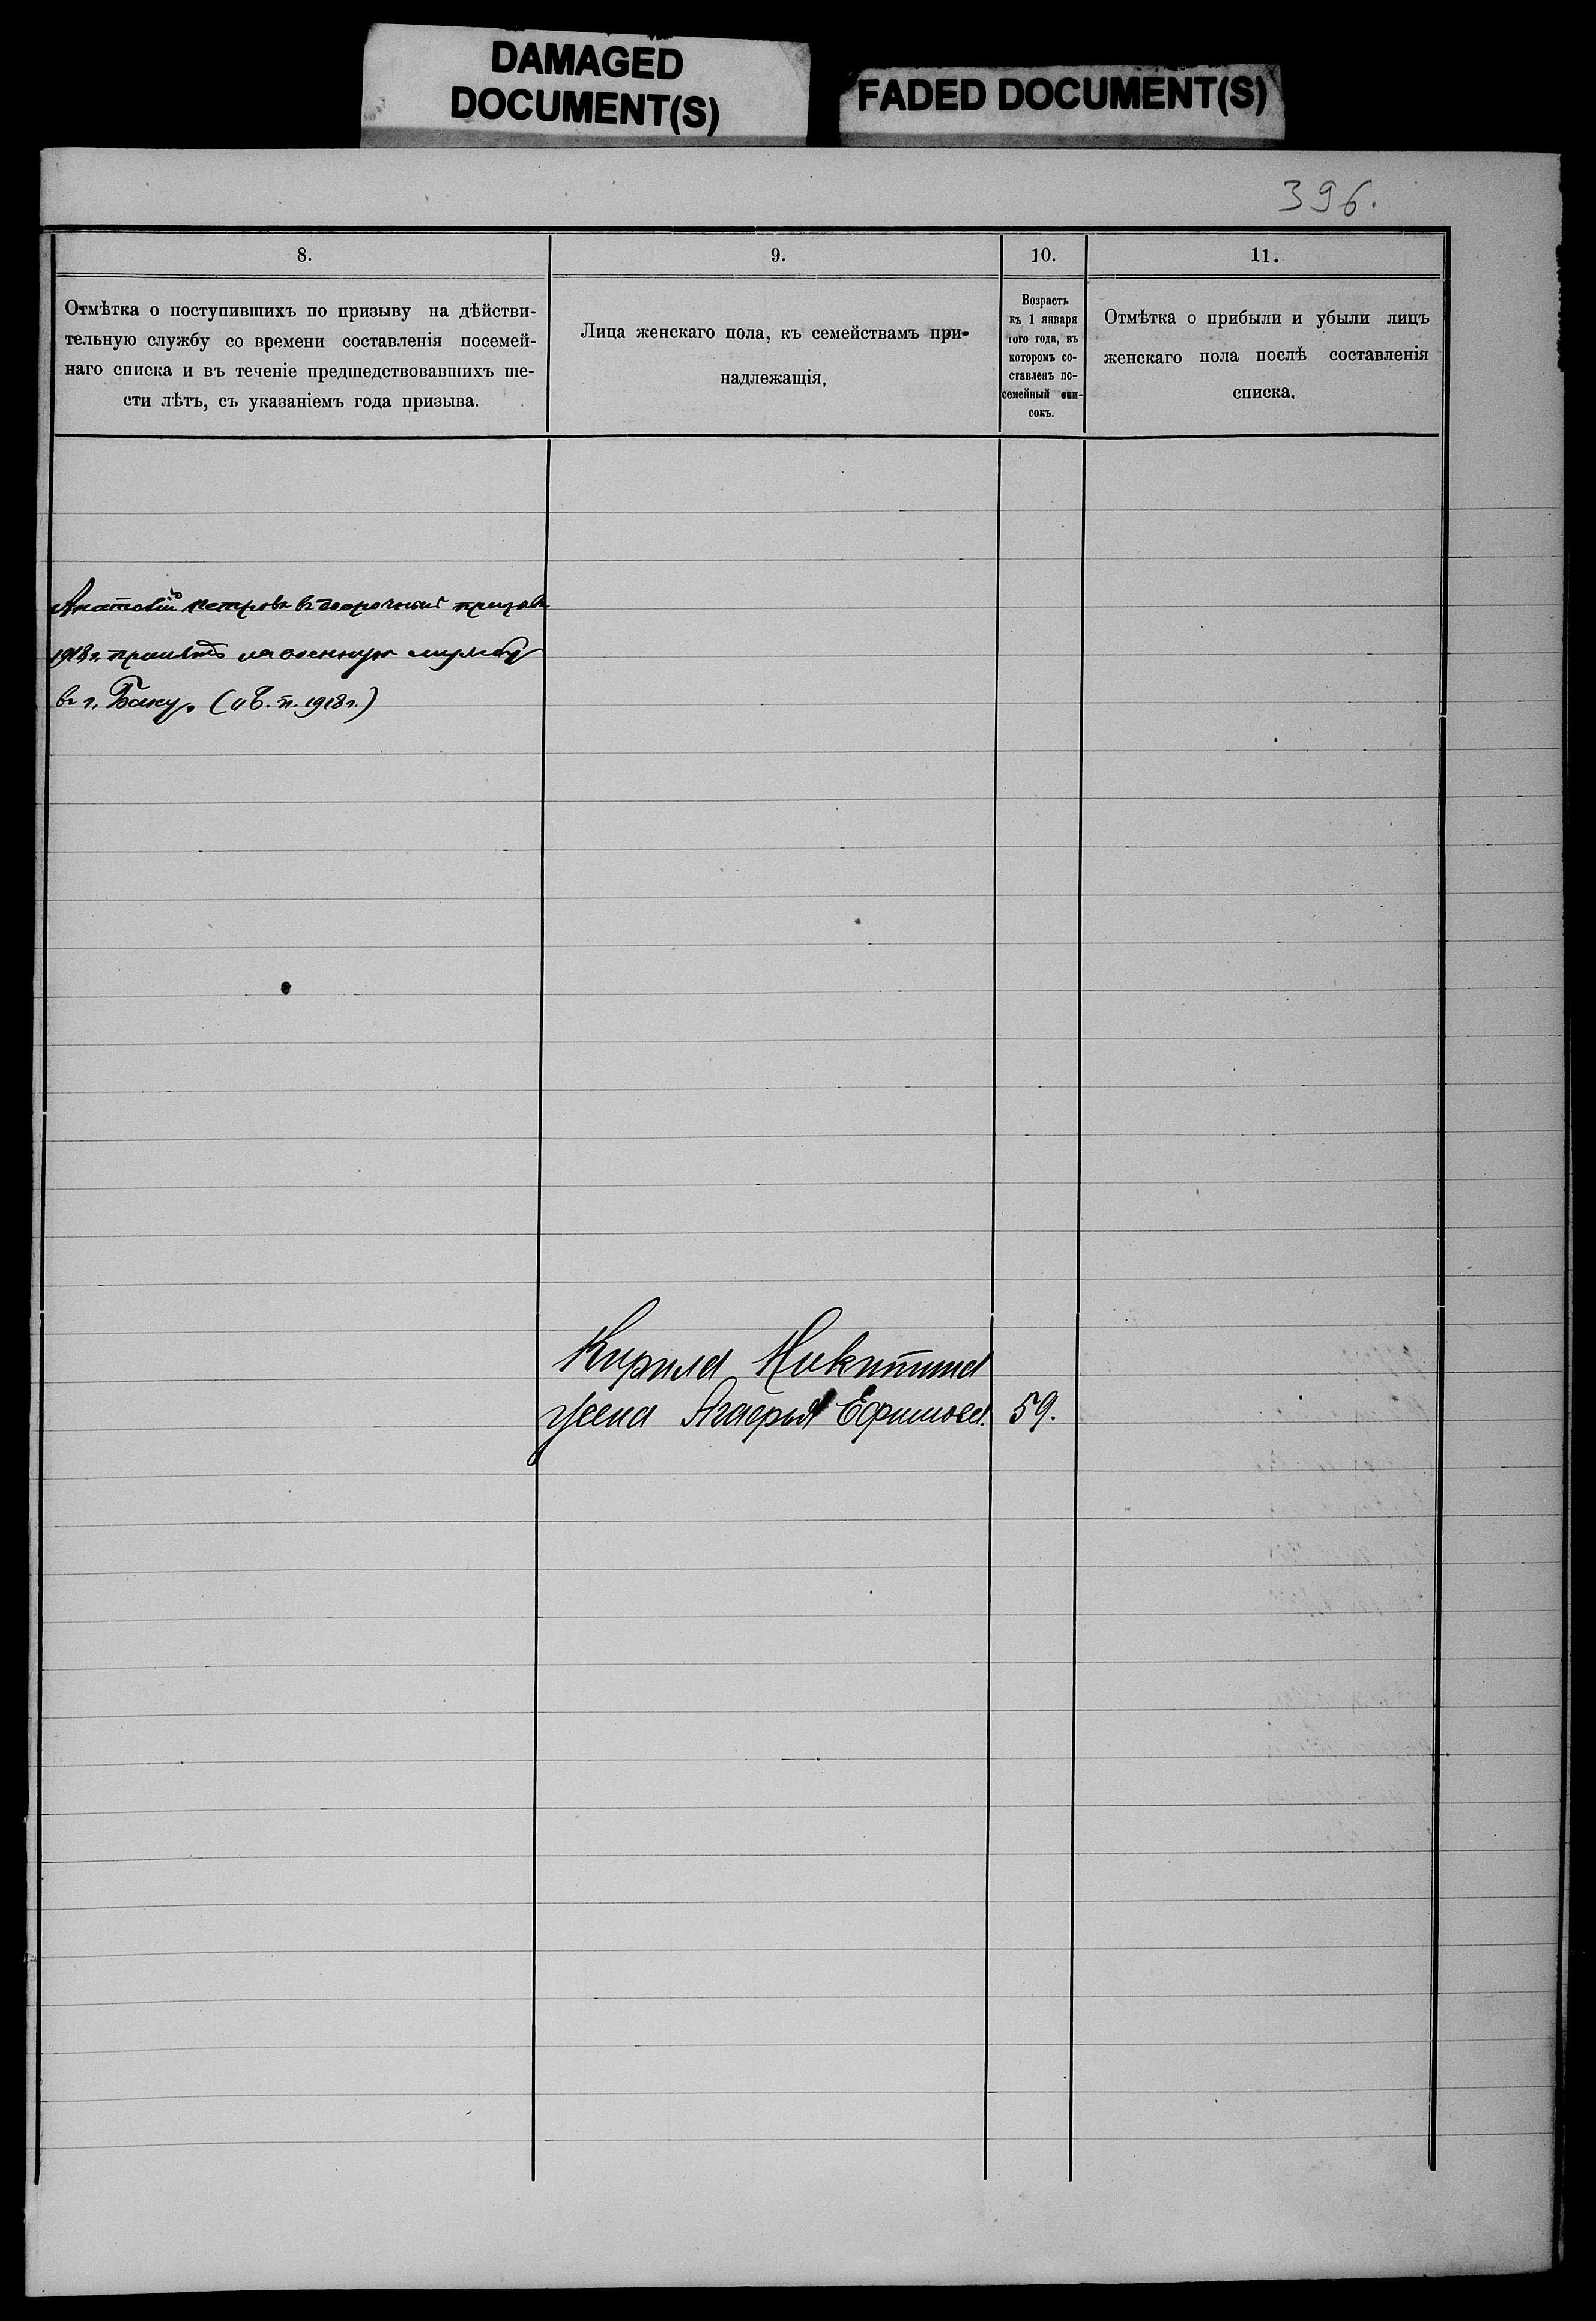 DAMAGED
DOCUMENT(S)
FADED DOCUMENT(S)
396.
8.
9.
10.
11.
Отмѣтка о поступившихъ по призыву на дѣйстви-
тельную службу со времени составленія посемей-
наго списка и въ теченіе предшедствовавшихъ ше-
сти лѣтъ, съ указаніемъ года призыва.
Лица женскаго пола, къ семействамъ при-
надлежащія,
Возрастъ
къ 1 января
того года, въ
которомъ со-
ставленъ по-
семейный спи-
сокъ.
Отмѣтка о прибыли и убыли лицъ
женскаго пола послѣ составленія
списка,
Анатолій Петровъ въ досрочный призывъ
1918 г. принятъ на военную службу
въ г. Баку. (1918 г.)
Кирила Никитина
жена Ефимова. 59.